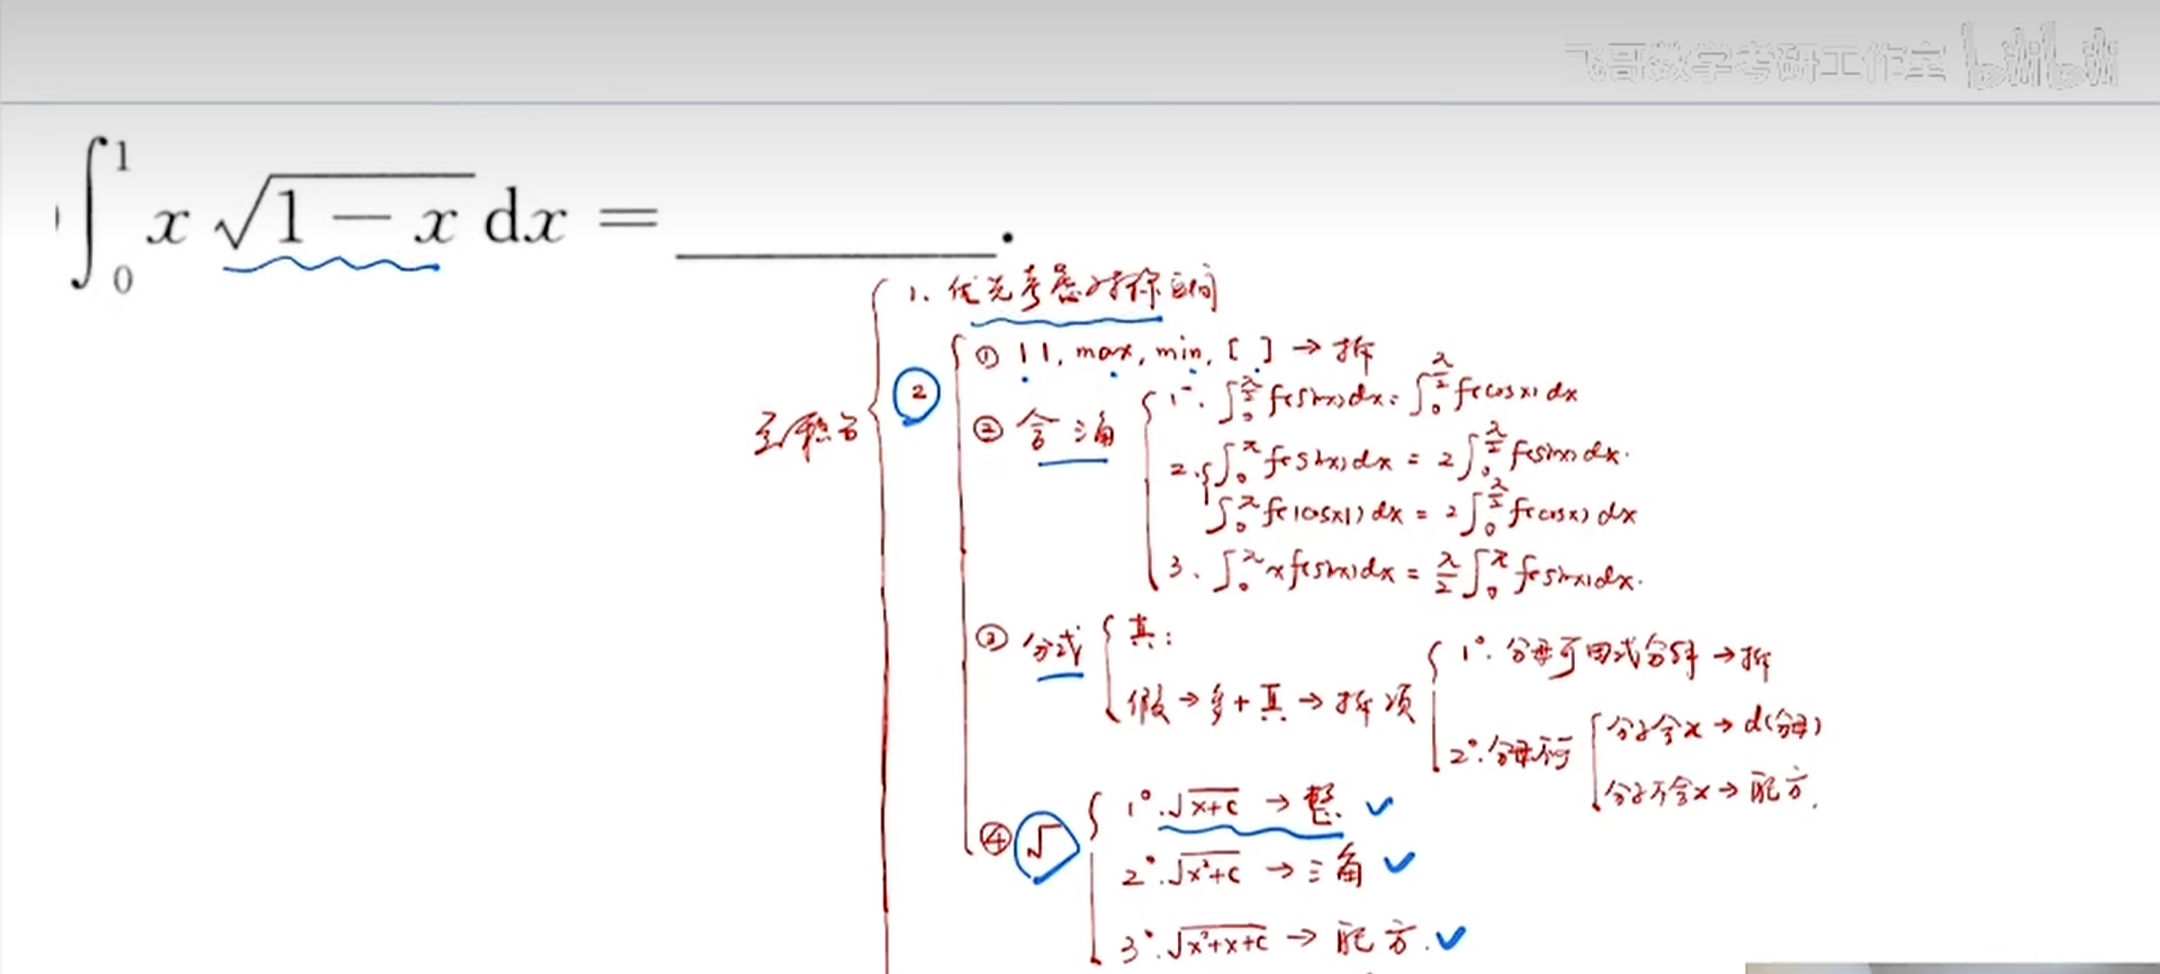 飞哥数学考研工作室 bilibili
∫₀¹ x √(1 − x) dx = ________.
1. 优先考虑对称区间
② ① | |, max, min, [ ] → 拆
定积分
② 含三角
1°. ∫₀^(π/2) f(sinx)dx = ∫₀^(π/2) f(cosx)dx
2. ∫₀^π f(sinx)dx = 2∫₀^(π/2) f(sinx)dx.
∫₀^π f(|cosx|)dx = 2∫₀^(π/2) f(cosx)dx
3. ∫₀^π xf(sinx)dx = π/2 ∫₀^π f(sinx)dx.
③ 分式
真:
假 → 多 + 真 → 拆项
1°. 分母可因式分解 → 拆
2°. 分母不可
分子含x → d(分母)
分子不含x → 配方.
④ √
1°. √(x+c) → 整 ✓
2°. √(x²+c) → 三角 ✓
3°. √(x²+x+c) → 配方. ✓